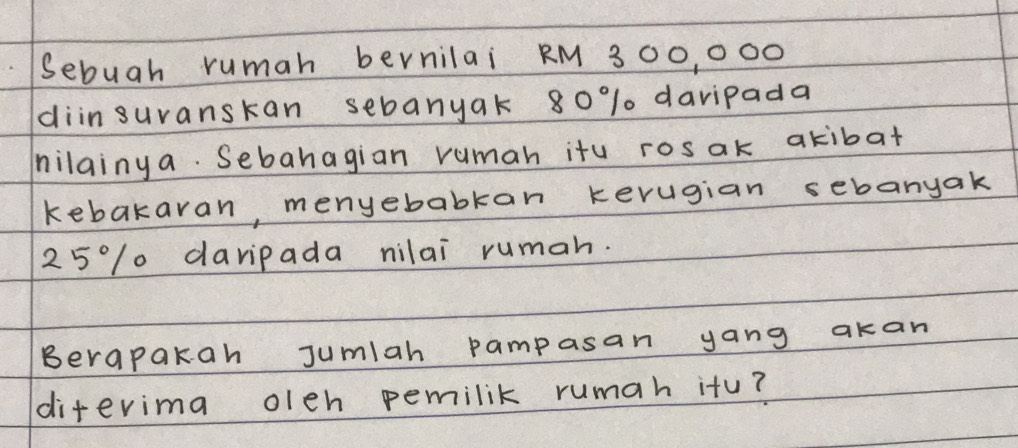 Sebuah rumah bernilai RM 300,000
diinsuranskan sebanyak 80% daripada
nilainya. Sebahagian rumah itu rosak akibat
kebakaran, menyebabkan kerugian sebanyak
25% daripada nilai rumah.
Berapakah jumlah pampasan yang akan
diterima oleh pemilik rumah itu?